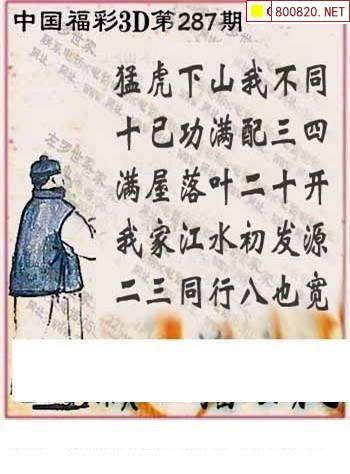 中国福彩3D第287期
800820.NET
猛虎下山我不同
十已功满配三四
满屋落叶二十开
我家江水初发源
二三同行八也宽